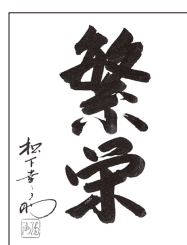 繁栄
松下幸之助